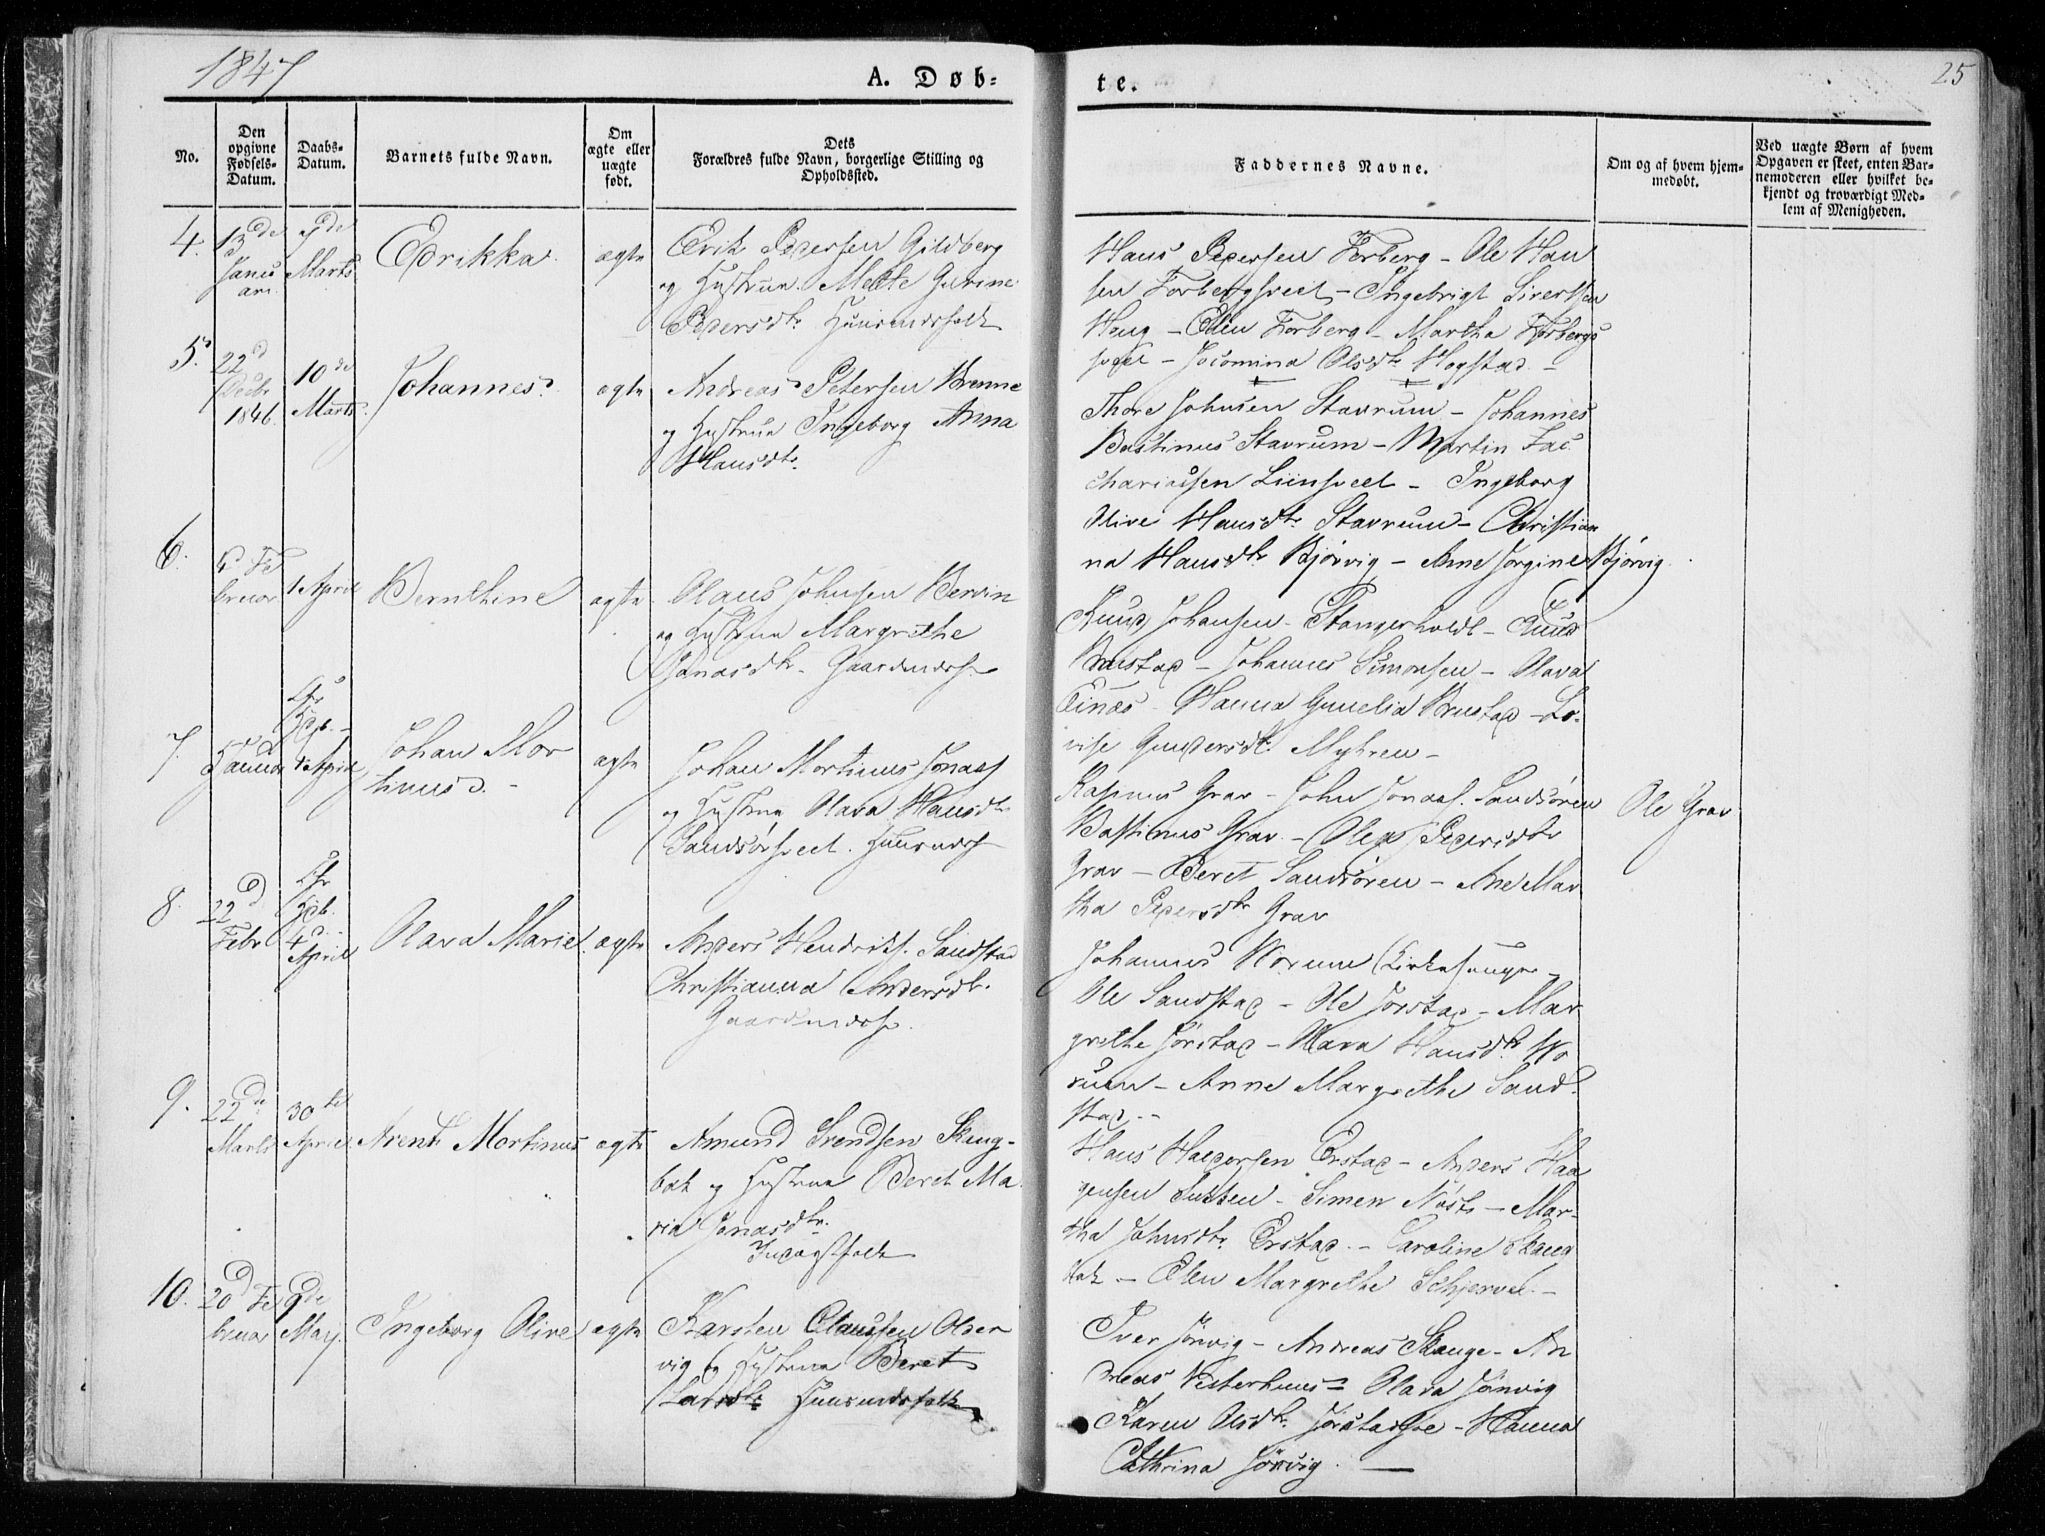 1847
A. Døb=
te.
25
No.
Den opgivne Fødsels-Datum.
Daabs-Datum.
Barnets fulde Navn.
Om ægte eller uægte født.
Dets Forældres fulde Navn, borgerlige Stilling og Opholdssted.
Faddernes Navne.
Om og af hvem hjem-medøbt.
Ved uægte Børn af hvem Opgaven er skeet, enten Bar-nemoderen eller hvilket be-kjendt og troværdigt Med-lem af Menigheden.
4. 13de Janu ari
Marts
Edrikka
ægte
Erik Pedersen Gildberg
og Hustrue Mette Gurine
Pedersdtr. Huusmdsfolk
Hans Pedersen Forberg - Ole Han
sen Forbergsveet - Ingebrigt Sivertsen
Haug - Elen Forberg - Martha Forbergs
Jocomina Olsdtr. Hogstad -
5. 22d Decbr 1846.
10de Marts
Johannes.
ægte
Andreas Petersen Brenne
og Hustrue Ingeborg Anna
Hansdtr.
Thore Johnsen Stavrum - Johannes
Bastinus Stavrum - Martin Zac
chariassen Liinsveet - Ingeborg
Olive Hansdtr. Stavrum - Christian
na Hansdtr Bjørvig - Ane Jorgine Bjørvig
6. Fe bruar
1 April
Bernthine
ægte
Olaus Johnsen Bervin
og Hustrue Margrethe
Jonasdtr. Gaardmdsf.
Knud Johansen Stangerholdt - Knud
Brustad - Johannes Simonsen - Olava
Einæs - Hanna Gunelia Brustad - Lo-
vise Gundersdtr. Myhren -
7. Januar
April
Johan Mor
tinus. -
ægte
Johan Mortinus Jonass
og Hustrue Olava Hansdtr
Sandsørsveet. Huusmdsf
Rasmus Grav - John Jonass. Sandsøren
Bastinus Grav. - Olea Pedersdtr
Grav - Beret Sandsøren - Ane Mar
tha Pedersdtr Grav
Ole Grav
8. 22d Febr
4d April
Olava Marie
ægte
Anders Hendriks. Sandstad
Christianna Andersdtr.
Gaardmdsf.
Johannes Worum Kirkesanger -
Ole Sandstad - Ole Jørstad - Mar
grethe Jørstad - Olava Hansdtr. Wo
rum - Anne Margrethe Sand-
stad. -
9. 22de Marts
30te April
Arent Mortinus
ægte
Amund Svendsen Skaug-
bak og Hustrue Beret Ma
ria Jonasdtr.
Inderstfolk
Hans Haldorsen Ørstad - Anders Haa
gensen - Simen - Mar-
tha Johnsdtr. Ørstad. - Caroline Skaug
bak - Elen Margrethe Schjerve. -
10. 20d Fe bruar
9de May.
Ingeborg Olive
ægte
Karsten Claussen Older
vig og Hustrue Beret
Larsdtr. Huusmdsfolk
Iver Jønvig - Andreas Skauge - An
dreas Vesterhuus - Olava Jønvig
Karen Olsdtr. - Hanna
Cathrina Jønvig. -